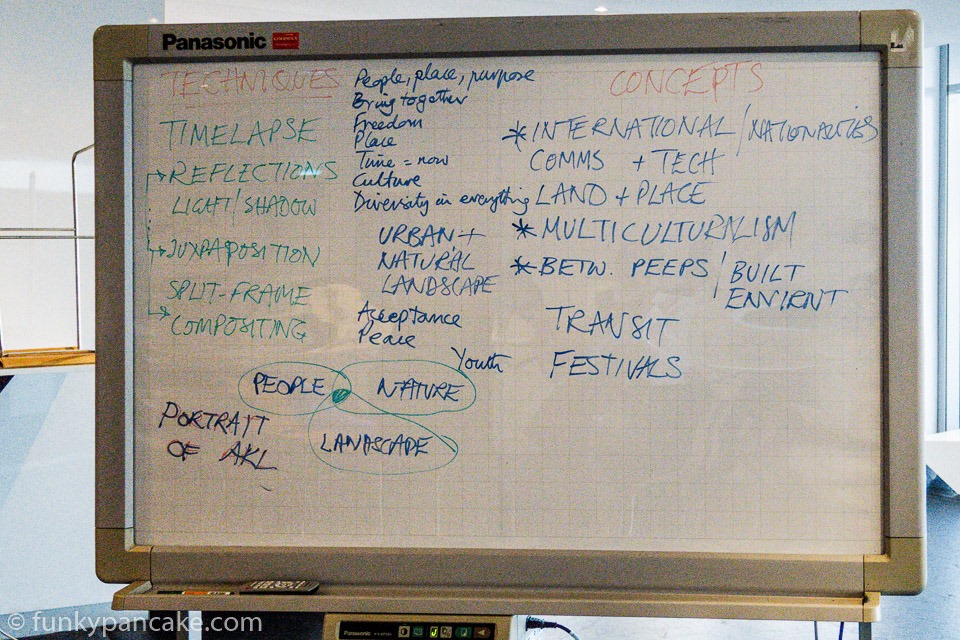 Panasonic
TECHNIQUES
TIMELAPSE
REFLECTIONS
LIGHT/SHADOW
JUXPAPOSITION
SPLIT-FRAME
COMPOSITING
People, place, purpose
Bring together
Freedom
Place
Time = now
Culture
Diversity in everything
URBAN +
NATURAL
LANDSCAPE
Acceptance
Peace
Youth
CONCEPTS
* INTERNATIONAL / NATIONALITIES
COMMS + TECH
LAND + PLACE
* MULTICULTURALISM
* BETW. PEEPS / BUILT
ENVIRNT
TRANSIT
FESTIVALS
PEOPLE
NATURE
LANDSCAPE
PORTRAIT
OF AKL
Panasonic
© funkypancake.com